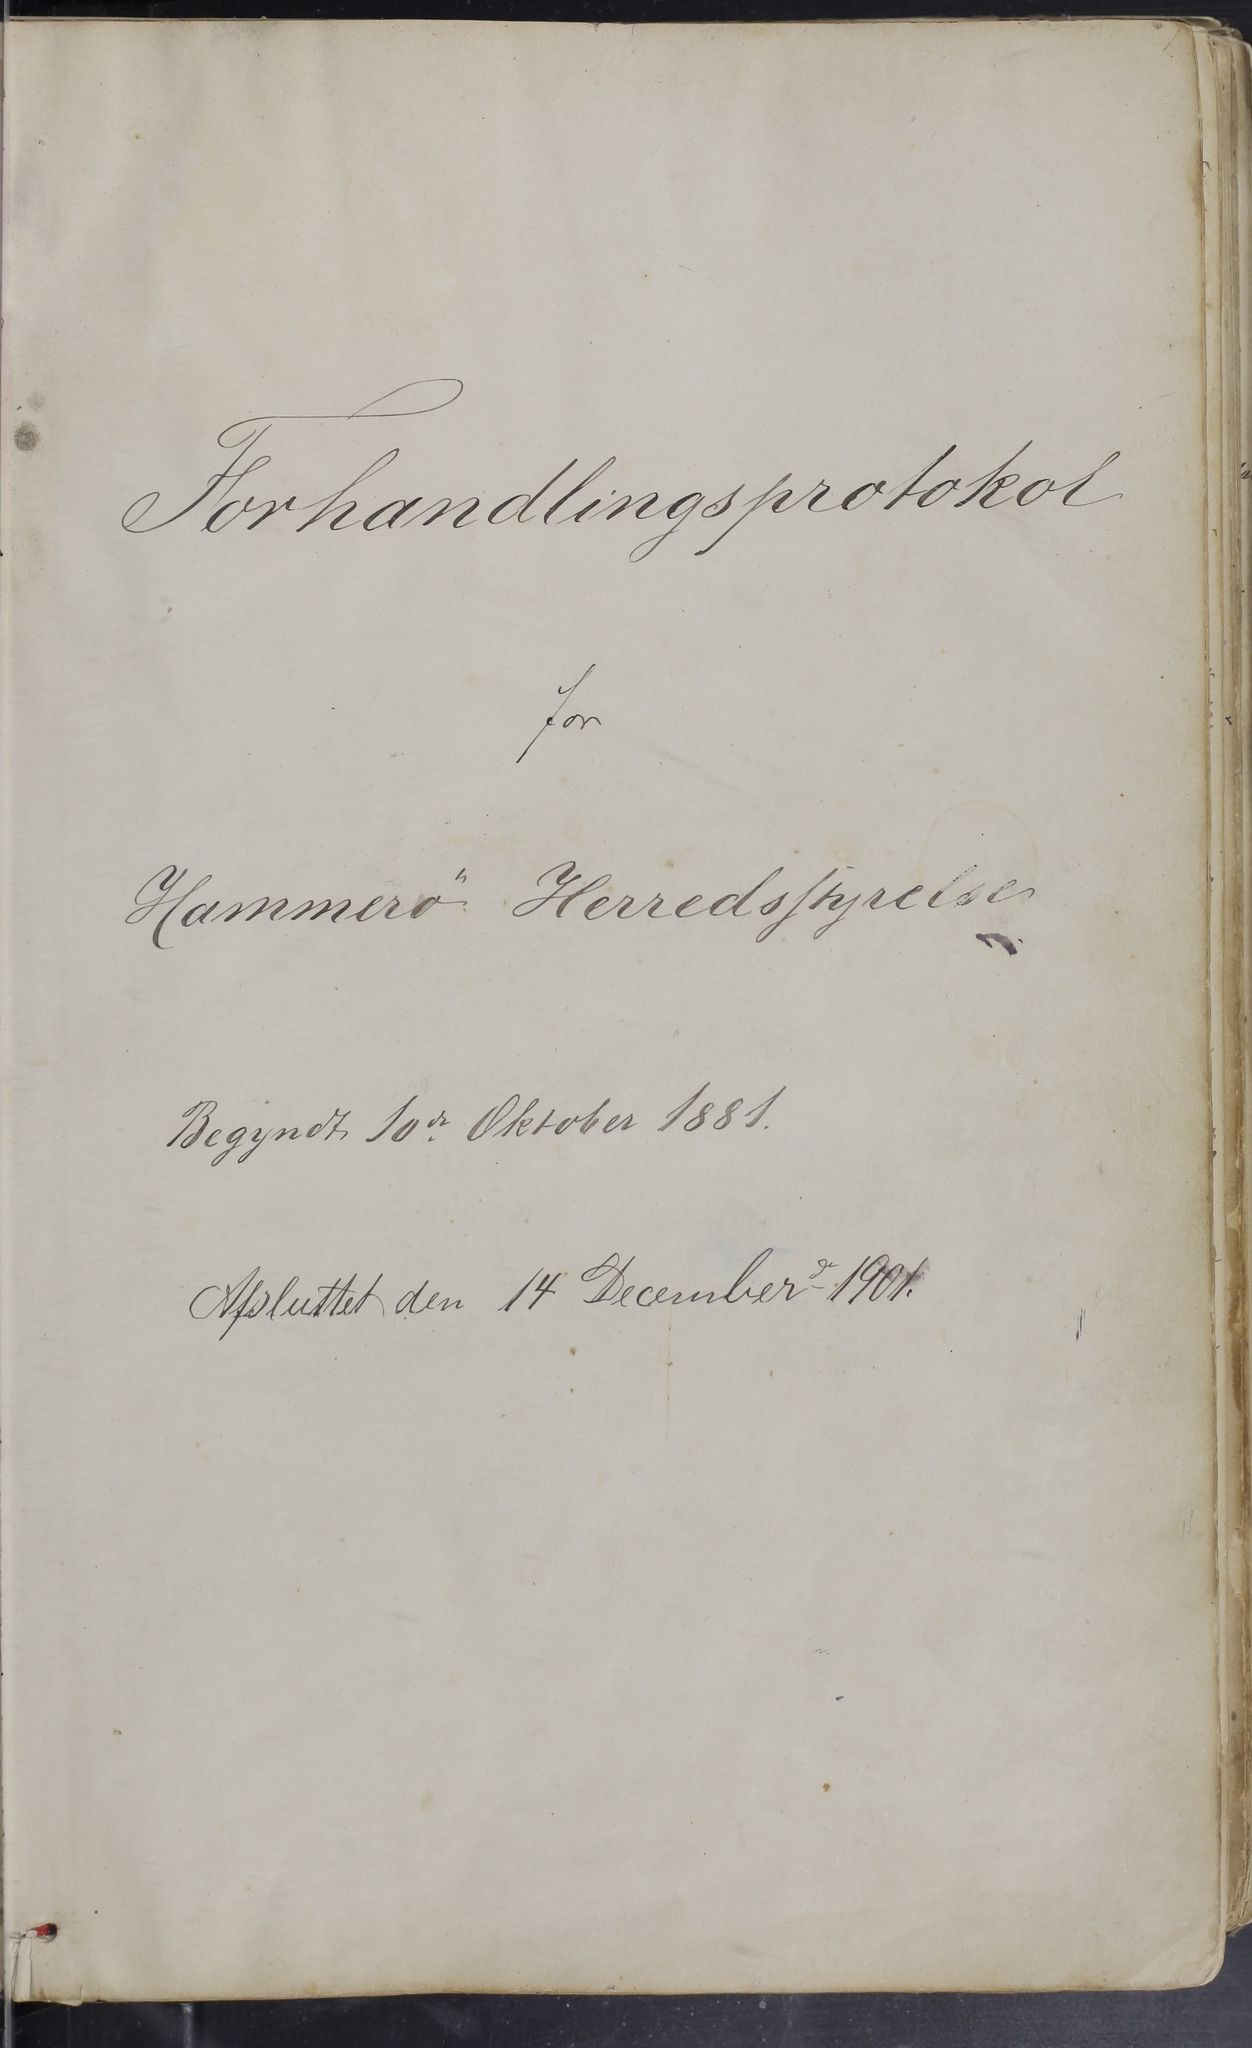 Forhandlingsprotokol
for
Hammerö Herredsstyrelse
Begyndt 10de Oktober 1881.
Afsluttet den 14 December 1901.